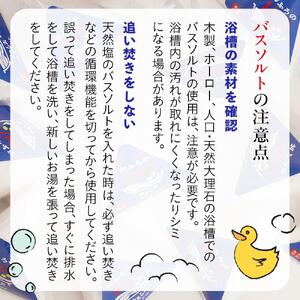 バスソルトの注意点
浴槽の素材を確認
木製、ホーロー、人口・天然大理石の浴槽での
バスソルトの使用は、注意が必要です。
浴槽内の汚れが取れにくくなったりシミ
になる場合があります。
追い焚きをしない
天然塩のバスソルトを入れた時は、必ず追い焚き
などの循環機能を切ってから使用してください。
誤って追い焚きをしてしまった場合、すぐに排水
をして浴槽を洗い、新しいお湯を張って追い焚き
をしてください。